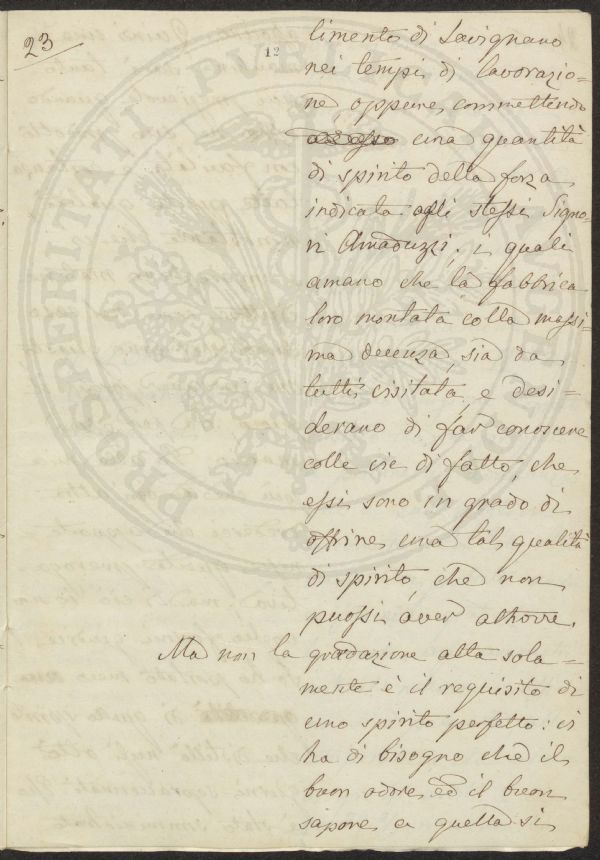 23
12
limento di Savignano
nei tempi di lavorazio=
ne, oppure, commettendo
una quantità
di spirito della forza
indicata agli stessi Signo=
ri Amaduzzi; i quali
amano che la fabbrica
loro montata colla massi=
ma decenza, sia da
tutti visitata, e desi=
derano di far conoscere
colle vie di fatto, che
essi sono in grado di
offrire, una tal, qualità
di spirito, che non
puossi aver altrove.
Ma non la gradazione alta sola=
mente è il requisito di
uno spirito perfetto: ci
ha di bisogno che il
buon odore, ed il buon
sapore, a quella si
PROSPERITATI PVBLICAE